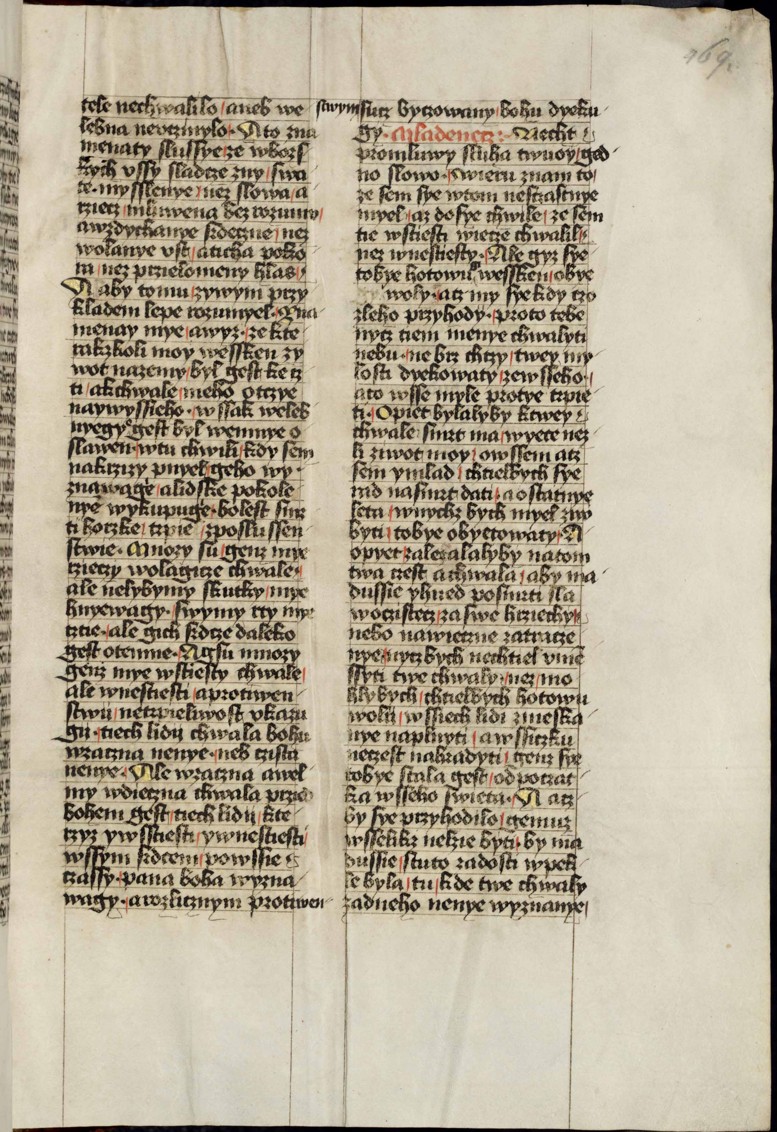 469.
tele nechwalilo / aneb we
lebna nevczinylo · A to zna
menaty slussye ze wborz
kych vssy sladcze zny / swa
te · myssslenye / nez slowa / a
wzdychanye srdeczne / nez
wolanye vst / aticha poko
ra / nez przielomeny hlas /
A aby tomu / zywym przy
kladem lepe rozumyel · Zna
menay mye / awyz · ze kte
rakzkoli moy wessken zy
wot nazemy / byl gest ke cz
ti / akchwale / meho otczye
naywyssieho · wssak weleb
nyegy gest byl wemnye o
slawen / wtu chwili / kdy sem
nakrzizy pnyel / geho wy ·
znawage / alidske pokole
nye wykupuge / bolest smr
ti horzke / trpie / zposlussen
stwie · Mnozy su / genz mye
rzieczy wolagicze chwale /
ale nelybymy skutky / mye
hnyewagy · swymy rty mye
cztie / ale gich srdcze daleko
gest otemne · A gsu mnozy
genz mye wstiesty chwale /
ale wnestiesti / aprotiwen
stwij / netrpieliwost vkazu
gij / tiech lidij chwala bohu
wzaczna nenye · neb czista
nenye · Ale wzaczna awel
my wdieczna chwala przed
bohem gest / tiech lidij / kte
rzyz ywsstiesti / ywnestiesti /
wssym srdcem / powssie
czassy · pana boha wyzna
wagy · arozlicznym protiwen
stwym sucz byczowany / bohu dyeku
gy · Mladenecz : Necht
promluwy sluha twuoy / ged
no slowo · Swieru znam to /
ze sem sye wtom nesczastnye
myel / az dosye chwile / ze sem
tie wstiesti wiecze chwalil /
nez wnestiesty · Ale gyz sye
tobye hotowu wessken / obye
woly · acz my sye kdy czo
zleho przyhody · proto tebe
nycz tiem menye chwalyti
nebu · ne brz chczy / twey my
losti dyekowaty / zewsseho /
ato wsse myle protye trpie
ti · Opiet bylalyby ktwey
chwale smrt ma / wyece nez
li ziwot moy / owssem acz
sem ymlad / chtielbych sye
rad nasmrt dati / a ostatnye
leta / wnychz bych myel zyw
byti / tobye obyetowaty · A
opyet zalezalalyby natom
twa czest achwala / aby ma
dussie yhned posmrti sla
woczistecz / za swe hrziechy /
nebo nawieczne zatracze
nye / nycz bych nechtiel vme
ssyti twe chwaly / nez / mo
hlybych / chtielbych hotowu
wolij / wssiech lidi zmeska
nye naplnyti / awssiczku
neczest nahradyti / genz sye
tobye stala gest / odpoczat
ka wsseho swieta · A acz
by sye przyhodilo / gemuz
wsselikz nelzie byti / by ma
dussie / stuto zadosti wpek
le byla / tu / kde twe chwaly
zadneho nenye wyznanye /